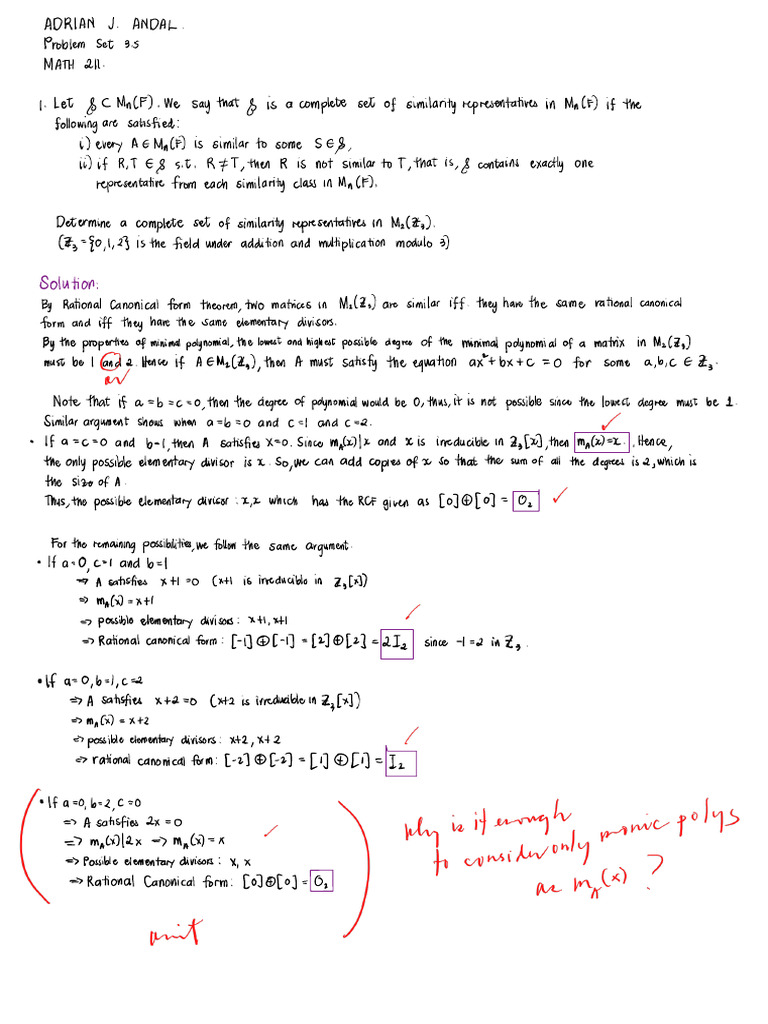 ADRIAN J. ANDAL.
Problem Set 3.5
MATH 211.
1. Let 𝒮 ⊂ Mₙ(F). We say that 𝒮 is a complete set of similarity representatives in Mₙ(F) if the
following are satisfied:
i) every A ∈ Mₙ(F) is similar to some S ∈ 𝒮,
ii) if R, T ∈ 𝒮 s.t. R ≠ T, then R is not similar to T, that is, 𝒮 contains exactly one
representative from each similarity class in Mₙ(F).
Determine a complete set of similarity representatives in M₂(ℤ₃).
(ℤ₃ = {0,1,2} is the field under addition and multiplication modulo 3)
Solution:
By Rational Canonical form theorem, two matrices in M₂(ℤ₃) are similar iff. they have the same rational canonical
form and iff they have the same elementary divisors.
By the properties of minimal polynomial, the lowest and highest possible degree of the minimal polynomial of a matrix in M₂(ℤ₃)
must be 1 and 2. Hence if A ∈ M₂(ℤ₃), then A must satisfy the equation ax² + bx + c = 0 for some a, b, c ∈ ℤ₃.
or
Note that if a = b = c = 0, then the degree of polynomial would be 0, thus, it is not possible since the lowest degree must be 1.
Similar argument shows when a = b = 0 and c = 1 and c = 2.
• If a = c = 0 and b = 1, then A satisfies x = 0. Since m_A(x) | x and x is irreducible in ℤ₃[x], then m_A(x) = x. Hence, ✓
the only possible elementary divisor is x. So, we can add copies of x so that the sum of all the degrees is 2, which is
the size of A.
Thus, the possible elementary divisor : x, x which has the RCF given as [0] ⊕ [0] = O₂ ✓
For the remaining possibilities, we follow the same argument.
• If a = 0, c = 1 and b = 1
⇒ A satisfies x + 1 = 0 (x+1 is irreducible in ℤ₃[x])
⇒ m_A(x) = x + 1
⇒ possible elementary divisors : x+1, x+1
⇒ Rational canonical form : [-1] ⊕ [-1] = [2] ⊕ [2] = 2I₂ since -1 = 2 in ℤ₃. ✓
• If a = 0, b = 1, c = 2
⇒ A satisfies x + 2 = 0 (x+2 is irreducible in ℤ₃[x])
⇒ m_A(x) = x + 2
⇒ possible elementary divisors : x+2, x+2
⇒ rational canonical form : [-2] ⊕ [-2] = [1] ⊕ [1] = I₂ ✓
• If a = 0, b = 2, c = 0
⇒ A satisfies 2x = 0
⇒ m_A(x) | 2x ⇒ m_A(x) = x ✓
⇒ Possible elementary divisors : x, x
⇒ Rational Canonical form : [0] ⊕ [0] = O₂
Why is it enough
to consider only monic polys
as m_A(x) ?